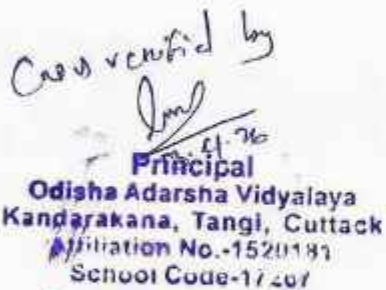 Cross verified by
Principal
Odisha Adarsha Vidyalaya
Kandarakana, Tangi, Cuttack
Affiliation No.-1520181
School Code-17267